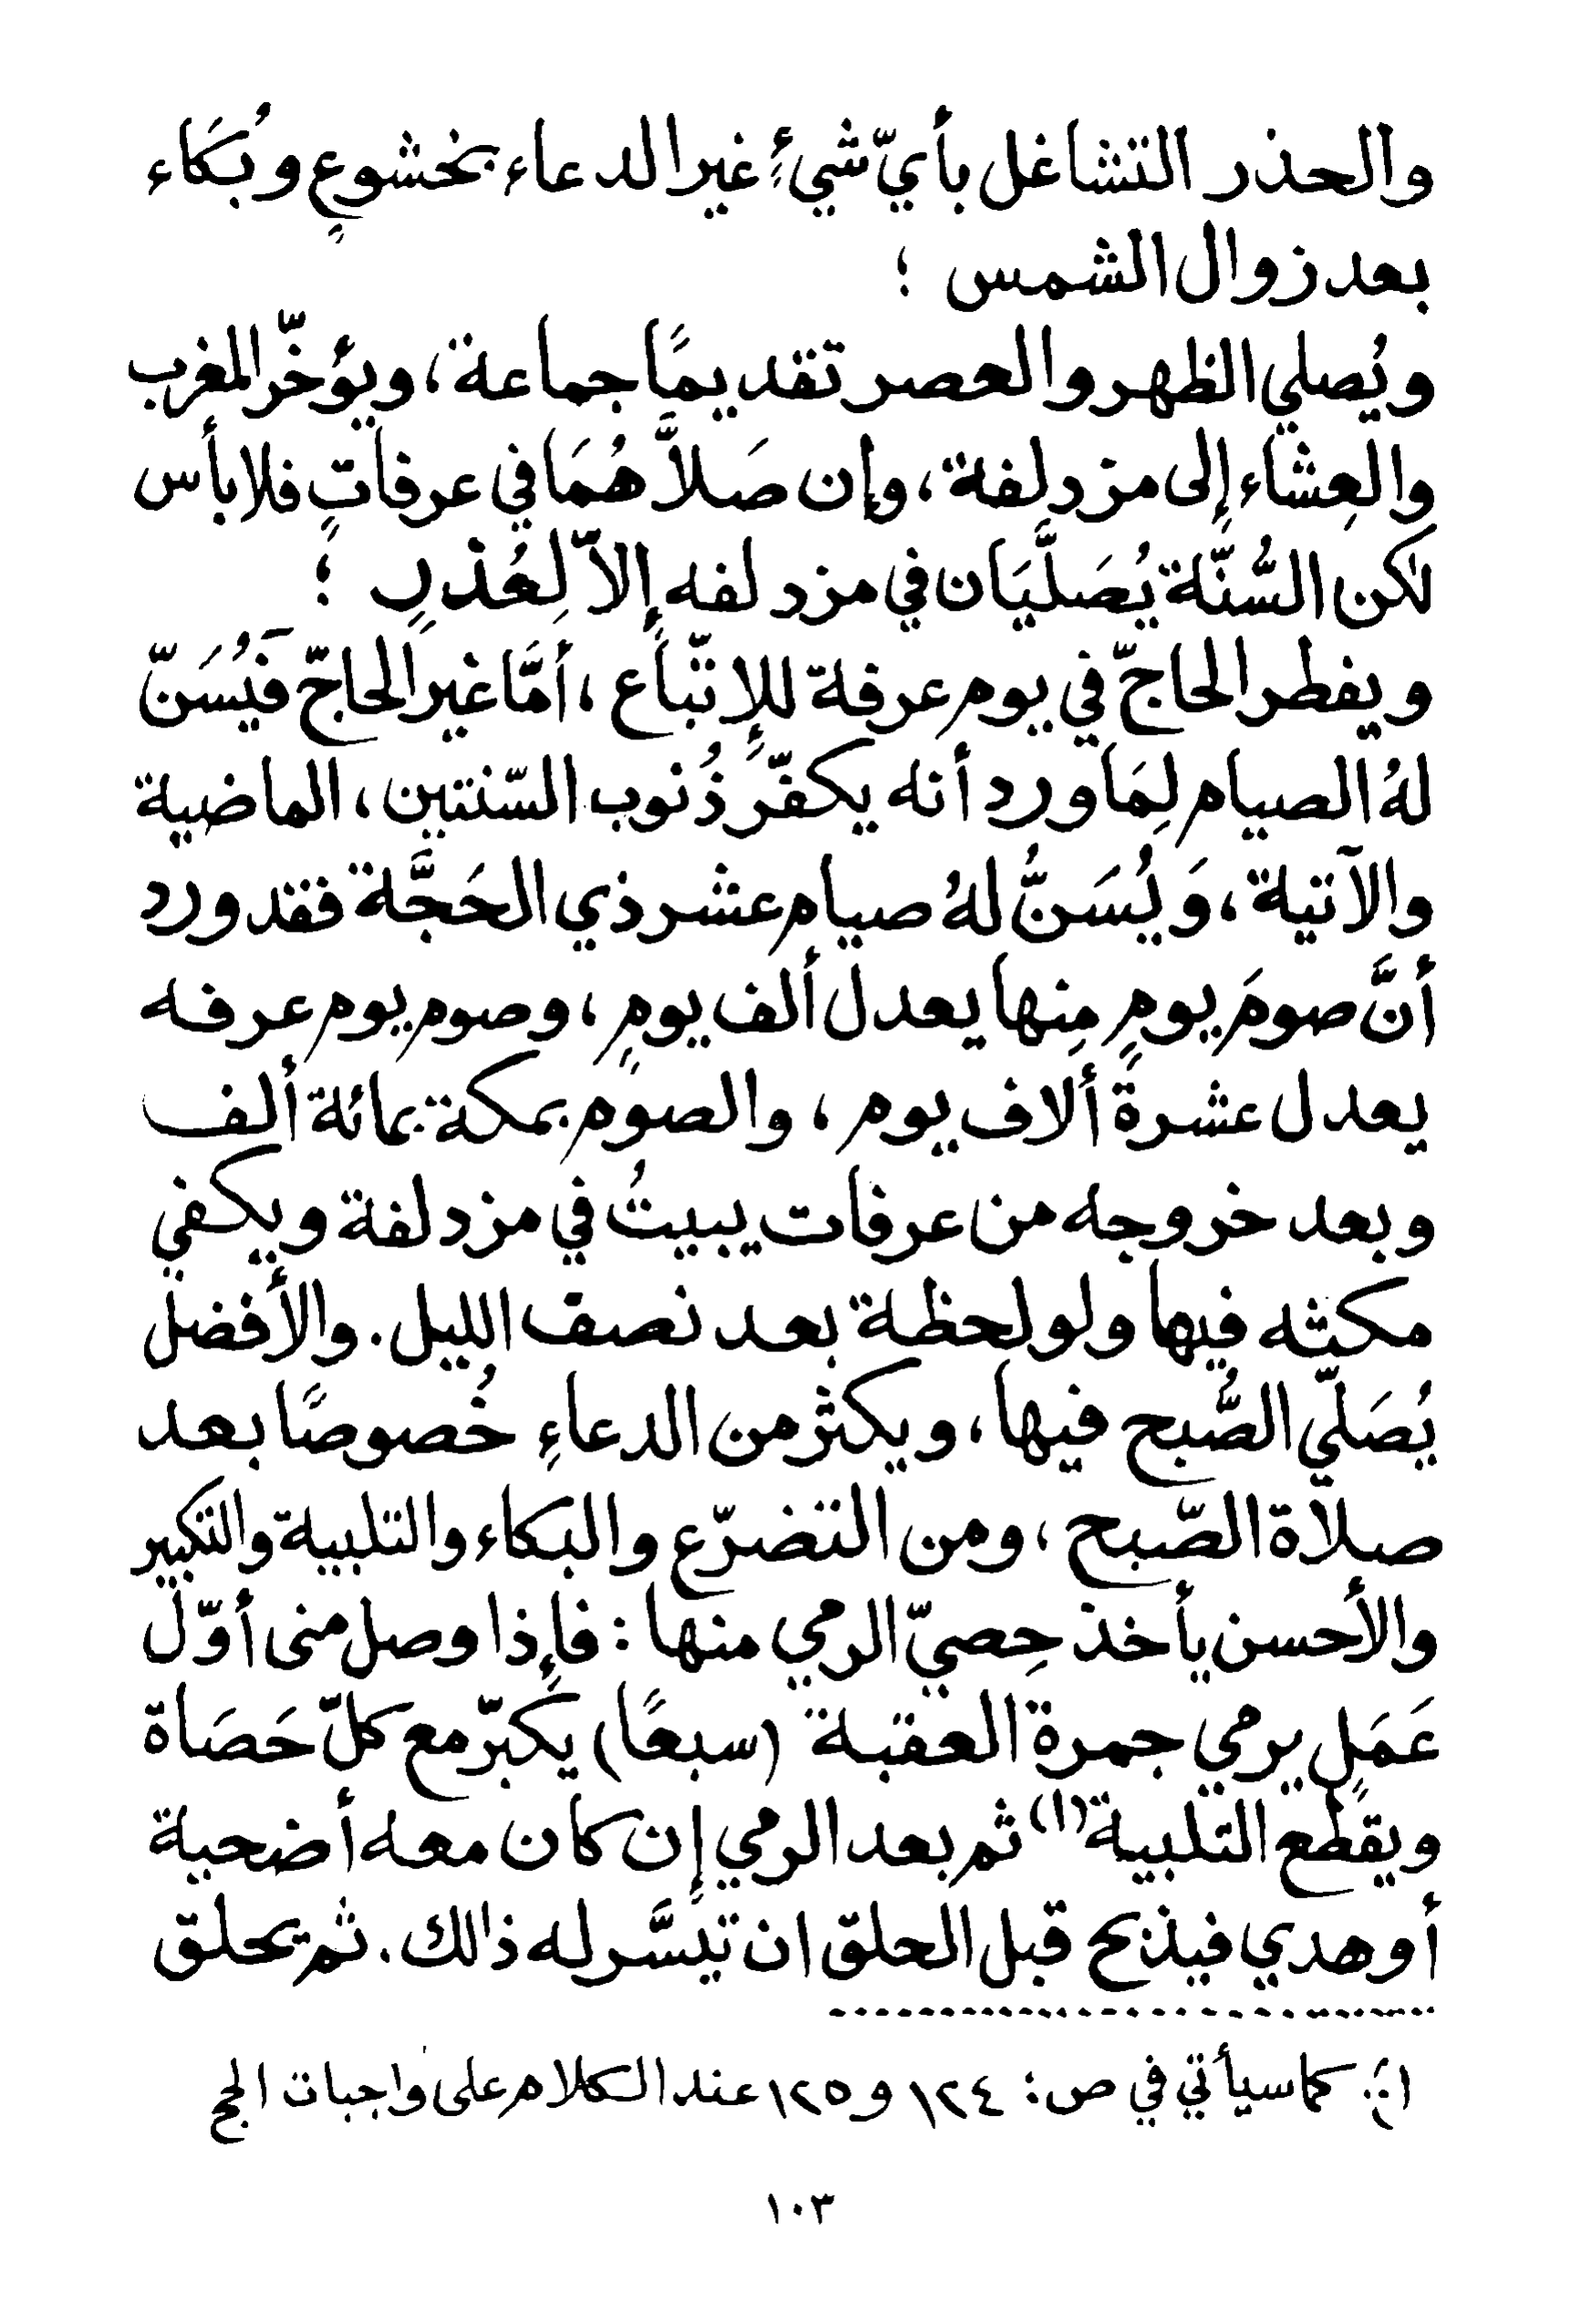 والحذر التشاغل بأيّ شيءٍ غير الدعاء بخشوعٍ وبُكَاء
بعد زوال الشمس ؛
ويُصلي الظهر والعصر تقديمًا جماعة ، ويؤخّر المغرب
والعِشاء إلى مزدلفة ، وإن صَلاَّهُمَا في عرفاتٍ فلا بأس
لكن السُّنّة يُصَلَّيَان في مزدلفه إلاّ لِعُذرٍ ؛
ويفطر الحاجّ في يوم عرفة للإتّباع ، أمَّا غير الحاجّ فَيُسَنّ
لهُ الصيام لِمَا ورد أنه يكفّر ذُنوب السّنتين ، الماضية
والآتية ، وَيُسَنُّ لهُ صيام عشر ذي الحَجَّة فقد ورد
أنَّ صومَ يومٍ مِنها يعدل ألف يومٍ ، وصوم يوم عرفه
يعدل عشرةَ ألاف يوم ، والصوم بمكة بمائة ألف
وبعد خروجه من عرفات يبيتُ في مزدلفة ويكفي
مكثه فيها ولو لحظة بعد نصف الليل . والأفضل
يُصَلّي الصُّبح فيها ، ويكثر من الدعاءِ خُصوصًا بعد
صلاة الصّبح ، ومن التضرّع والبكاء والتلبية والتكبير
والأحسن يأخذ حِصيّ الرمي منها : فإذا وصل منى أوّل
عَمَلٍ يرمي جمرة العقبة (سبعًا) يكبّر مع كلّ حَصَاة
ويقطع التلبية (١) ثم بعد الرمي إن كان معه أضحية
أو هدي فيذبح قبل الحلق ان تيسَّر له ذالك . ثم يحلق
(١) كما سيأتي في ص : ١٢٤ و ١٢٥ عند الكلام على واجبات الحج
١٠٣